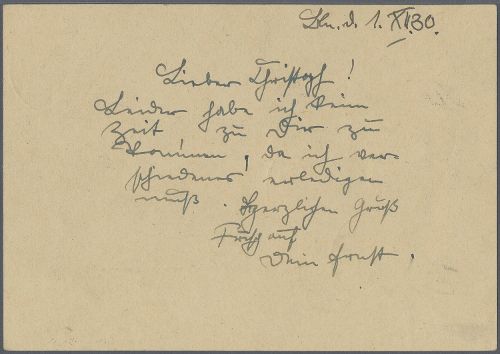 Bln. d. 1. XI. 30.
Lieber Christoph!
Leider habe ich keine
Zeit zu Dir zu
kommen, da ich ver-
schiedenes erledigen
muß. Herzlichen Gruß
Frisch auf
Dein Ernst.